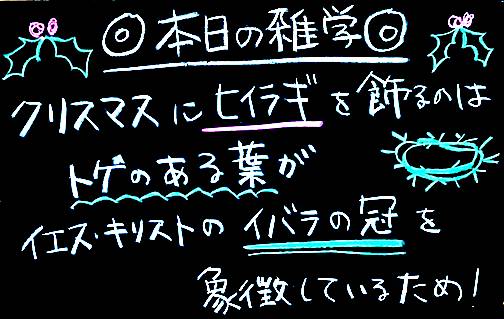 ◎本日の雑学◎
クリスマスにヒイラギを飾るのは
トゲのある葉が
イエス・キリストのイバラの冠を
象徴しているため!